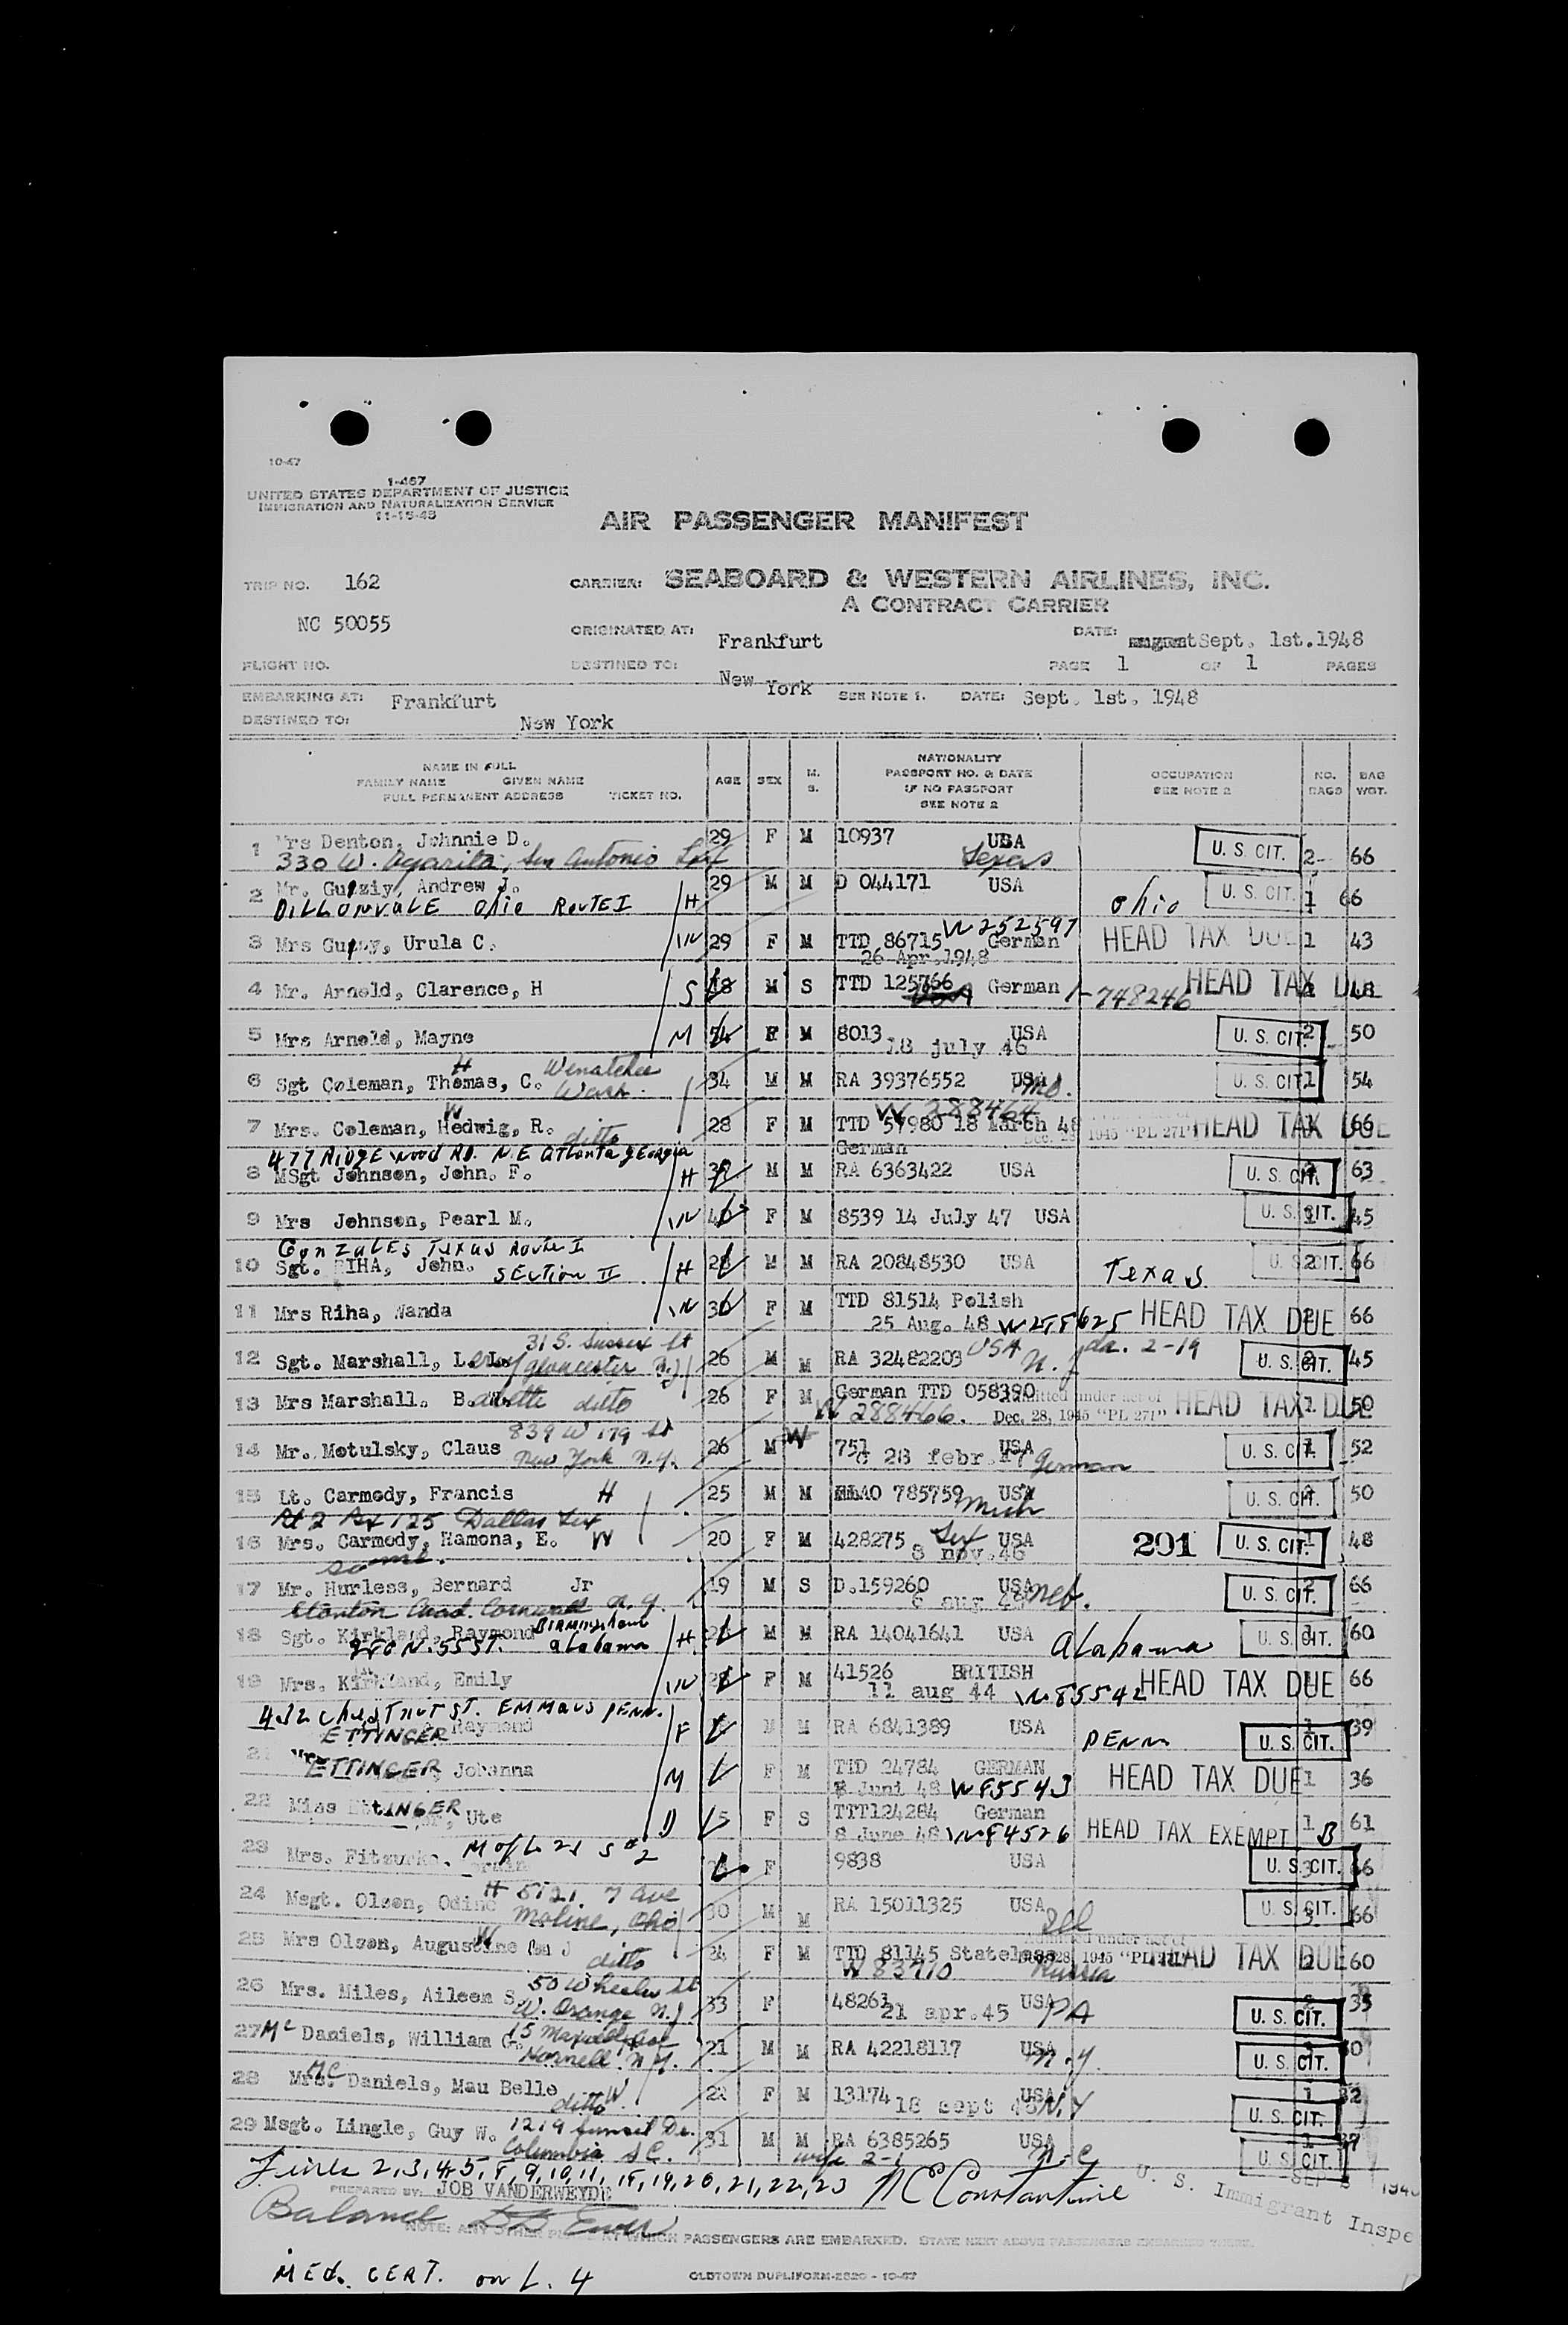 10-47
1-467
UNITED STATES DEPARTMENT OF JUSTICE
IMMIGRATION AND NATURALIZATION SERVICE
11-15-45
AIR PASSENGER MANIFEST
TRIP NO. 162 CARRIER: SEABOARD & WESTERN AIRLINES, INC.
A CONTRACT CARRIER
NC 50055 ORIGINATED AT: Frankfurt DATE: Sept. 1st. 1948
FLIGHT NO. DESTINED TO: New York PAGE 1 OF 1 PAGES
EMBARKING AT: Frankfurt SEE NOTE 1. DATE: Sept. 1st. 1948
DESTINED TO: New York
NAME IN FULL
FAMILY NAME GIVEN NAME
FULL PERMANENT ADDRESS TICKET NO.
AGE SEX M. S.
NATIONALITY
PASSPORT NO. & DATE
IF NO PASSPORT
SEE NOTE 2
OCCUPATION
SEE NOTE 2
NO. BAGS
BAG WGT.
1 Mrs Denton, Johnnie D. 29 F M 10937 USA U. S. CIT. 2 66
330 W. Agarita, San Antonio Texas
2 Mr. Andrew J. 29 M M D 044171 USA Ohio U. S. CIT. 1 66
DILLONVALE Ohio ROUTE I H
3 Mrs Urula C. W 29 F M TTD 86715 German W 252597 HEAD TAX DUE 1 43
26 Apr.1948
4 Mr. Arnold, Clarence, H S 18 M S TTD 125766 German 1-748246 HEAD TAX DUE
5 Mrs Arnold, Mayne M F M 8013 USA U. S. CIT. 2 50
18 july 46
6 Sgt Coleman, Thomas, C. H Wenatchee Wash. 34 M M RA 39376552 USA Mo. U. S. CIT. 1 54
7 Mrs. Coleman, Hedwig, R. W ditto 28 F M TTD 57980 18 March 48 W 288464 Dec. 28, 1945 "PL 271" HEAD TAX DUE 66
German
477 RIDGEWOOD RD. N.E ATLANTA GEORGIA
8 MSgt Johnson, John. F. H M M RA 6363422 USA U. S. CIT. 63
9 Mrs Johnson, Pearl M. W F M 8539 14 July 47 USA U. S. CIT. 45
GONZALES TEXAS ROUTE I
10 Sgt. RIHA, John. SECTION II H 28 M M RA 20848530 USA Texas U. S. CIT. 2 66
11 Mrs Riha, Wanda W 30 F M TTD 81514 Polish HEAD TAX DUE 66
25 Aug. 48
31 S. Sussex St
12 Sgt. Marshall, Leroy Gloucester N.J. 26 M M RA 32482203 USA N.J. U. S. CIT. 45
13 Mrs Marshall. Babette ditto 26 F M German TTD 058390 HEAD TAX DUE 1 50
W 288466. Admitted under act of Dec. 28, 1945 "PL 271"
839 W 179 St
14 Mr. Motulsky, Claus New York N.Y. 26 M 751 USA U. S. CIT. 1 52
28 febr. 47 German
15 Lt. Carmody, Francis H 25 M M O 785759 USA Mich U. S. CIT. 50
Rt 2 Box 125 Dallas Tex
16 Mrs. Carmody, Ramona, E. W 20 F M 428275 Tex USA 201 U. S. CIT. 1 48
same. 8 nov.46
17 Mr. Hurless, Bernard Jr 19 M S D.159260 USA Neb. U. S. CIT. 2 66
Stanton Acad. Cornwall N.Y. 6 aug
18 Sgt. Kirkland, Raymond Birmingham Alabama H M M RA 14041641 USA Alabama U. S. CIT. 60
N. 55 ST.
19 Mrs. Kirkland, Emily W F M 41526 BRITISH HEAD TAX DUE 66
11 aug 44 W-85542
432 Chestnut ST. EMMAUS PENN.
ETTINGER Raymond F M M RA 6841389 USA PENN U. S. CIT. 1 39
21 Mrs ETTINGER, Johanna M F M TTD 24784 GERMAN HEAD TAX DUE 1 36
8 Juni 48 W 85543
22 Miss EttINGER, Ute D 5 F S TTT124284 German HEAD TAX EXEMPT 1 B 61
8 June 48 W-84526
23 Mrs. F 9838 USA U. S. CIT. 3 66
24 Msgt. Olsen, H 5121 7 Ave Moline, Ohio 30 M M RA 15011325 USA Ill U. S. CIT. 3 66
25 Mrs Olsen, Augustine W ditto F M TTD 81145 Stateless HEAD TAX DUE 60
W 83710 Russia Admitted under act of Dec. 28, 1945 "PL 271"
26 Mrs. Miles, Aileen S. 50 Wheeler St W. Orange N.J 33 F 48261 USA PA U. S. CIT. 2 35
21 apr.45
27 Mc Daniels, William G. Hornell N.Y. 21 M M RA 42218117 USA N.Y. U. S. CIT.
28 Mrs. Mc Daniels, Mau Belle ditto W. 22 F M 13174 USA N.Y U. S. CIT. 1 32
18 sept
29 Msgt. Lingle, Guy W. 1219 Sunset Dr. Columbia S.C. 31 M M RA 6385265 USA N.C U. S. CIT. 1
Lines 2,3,4,5,8,9,10,11,18,19,20,21,22,23 U. S. Immigrant Inspe
PREPARED BY: JOB VANDERWEYDE
Balance
NOTE: ANY OTHER AT WHICH PASSENGERS ARE EMBARKED.
MED. CERT. on L. 4
OLDTOWN DUPLIFORM-2820 - 10-47